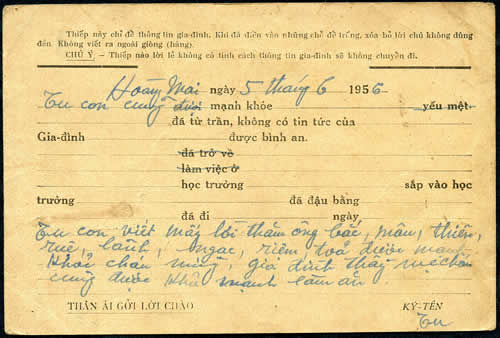 Thiếp này chỉ để thông tin gia-đình. Khi đã điền vào những chỗ để trống, xóa bỏ lời chú không dùng
đến. Không viết ra ngoài giòng (hàng).
CHÚ Ý – Thiếp nào lời lẽ không có tính cách thông tin gia-đình sẽ không chuyển đi.
Hoàng Mai ngày 5 tháng 6 1956
Tu con cũng được mạnh khỏe yếu mệt
đã từ trần, không có tin tức của
Gia-đình được bình an.
đã trở về
làm việc ở
học trường sắp vào học
trường đã đậu bằng
đã đi ngày
Tu con viết mấy lời thăm ông bác, mâu, thiện,
lành, ngạc, được mạnh
khỏi, gia đình thầy
cũng được khá mạnh làm ăn.
THÂN ÁI GỞI LỜI CHÀO KÝ-TÊN
Tu